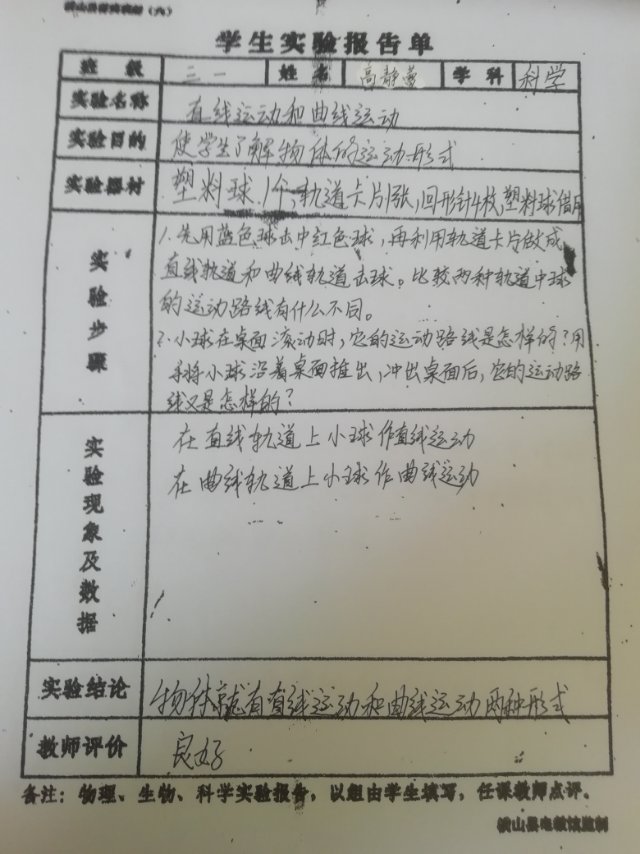 学生实验报告单
班级 三一 姓名 高静 学科 科学
实验名称 直线运动和曲线运动
实验目的 使学生了解物体的运动形式
实验器材 塑料球1个,轨道卡片1张,回形针4枚,塑料球借用
实验步骤
1.先用蓝色球击中红色球,再利用轨道卡片做成
直线轨道和曲线轨道击球。比较两种轨道中球
的运动路线有什么不同。
2.小球在桌面滚动时,它的运动路线是怎样的?用
手将小球沿着桌面推出,冲出桌面后,它的运动路
线又是怎样的?
实验现象及数据
在直线轨道上小球作直线运动
在曲线轨道上小球作曲线运动
实验结论 物体就有直线运动和曲线运动两种形式
教师评价 良好
备注:物理、生物、科学实验报告,以组由学生填写,任课教师点评。
横山县电教馆监制